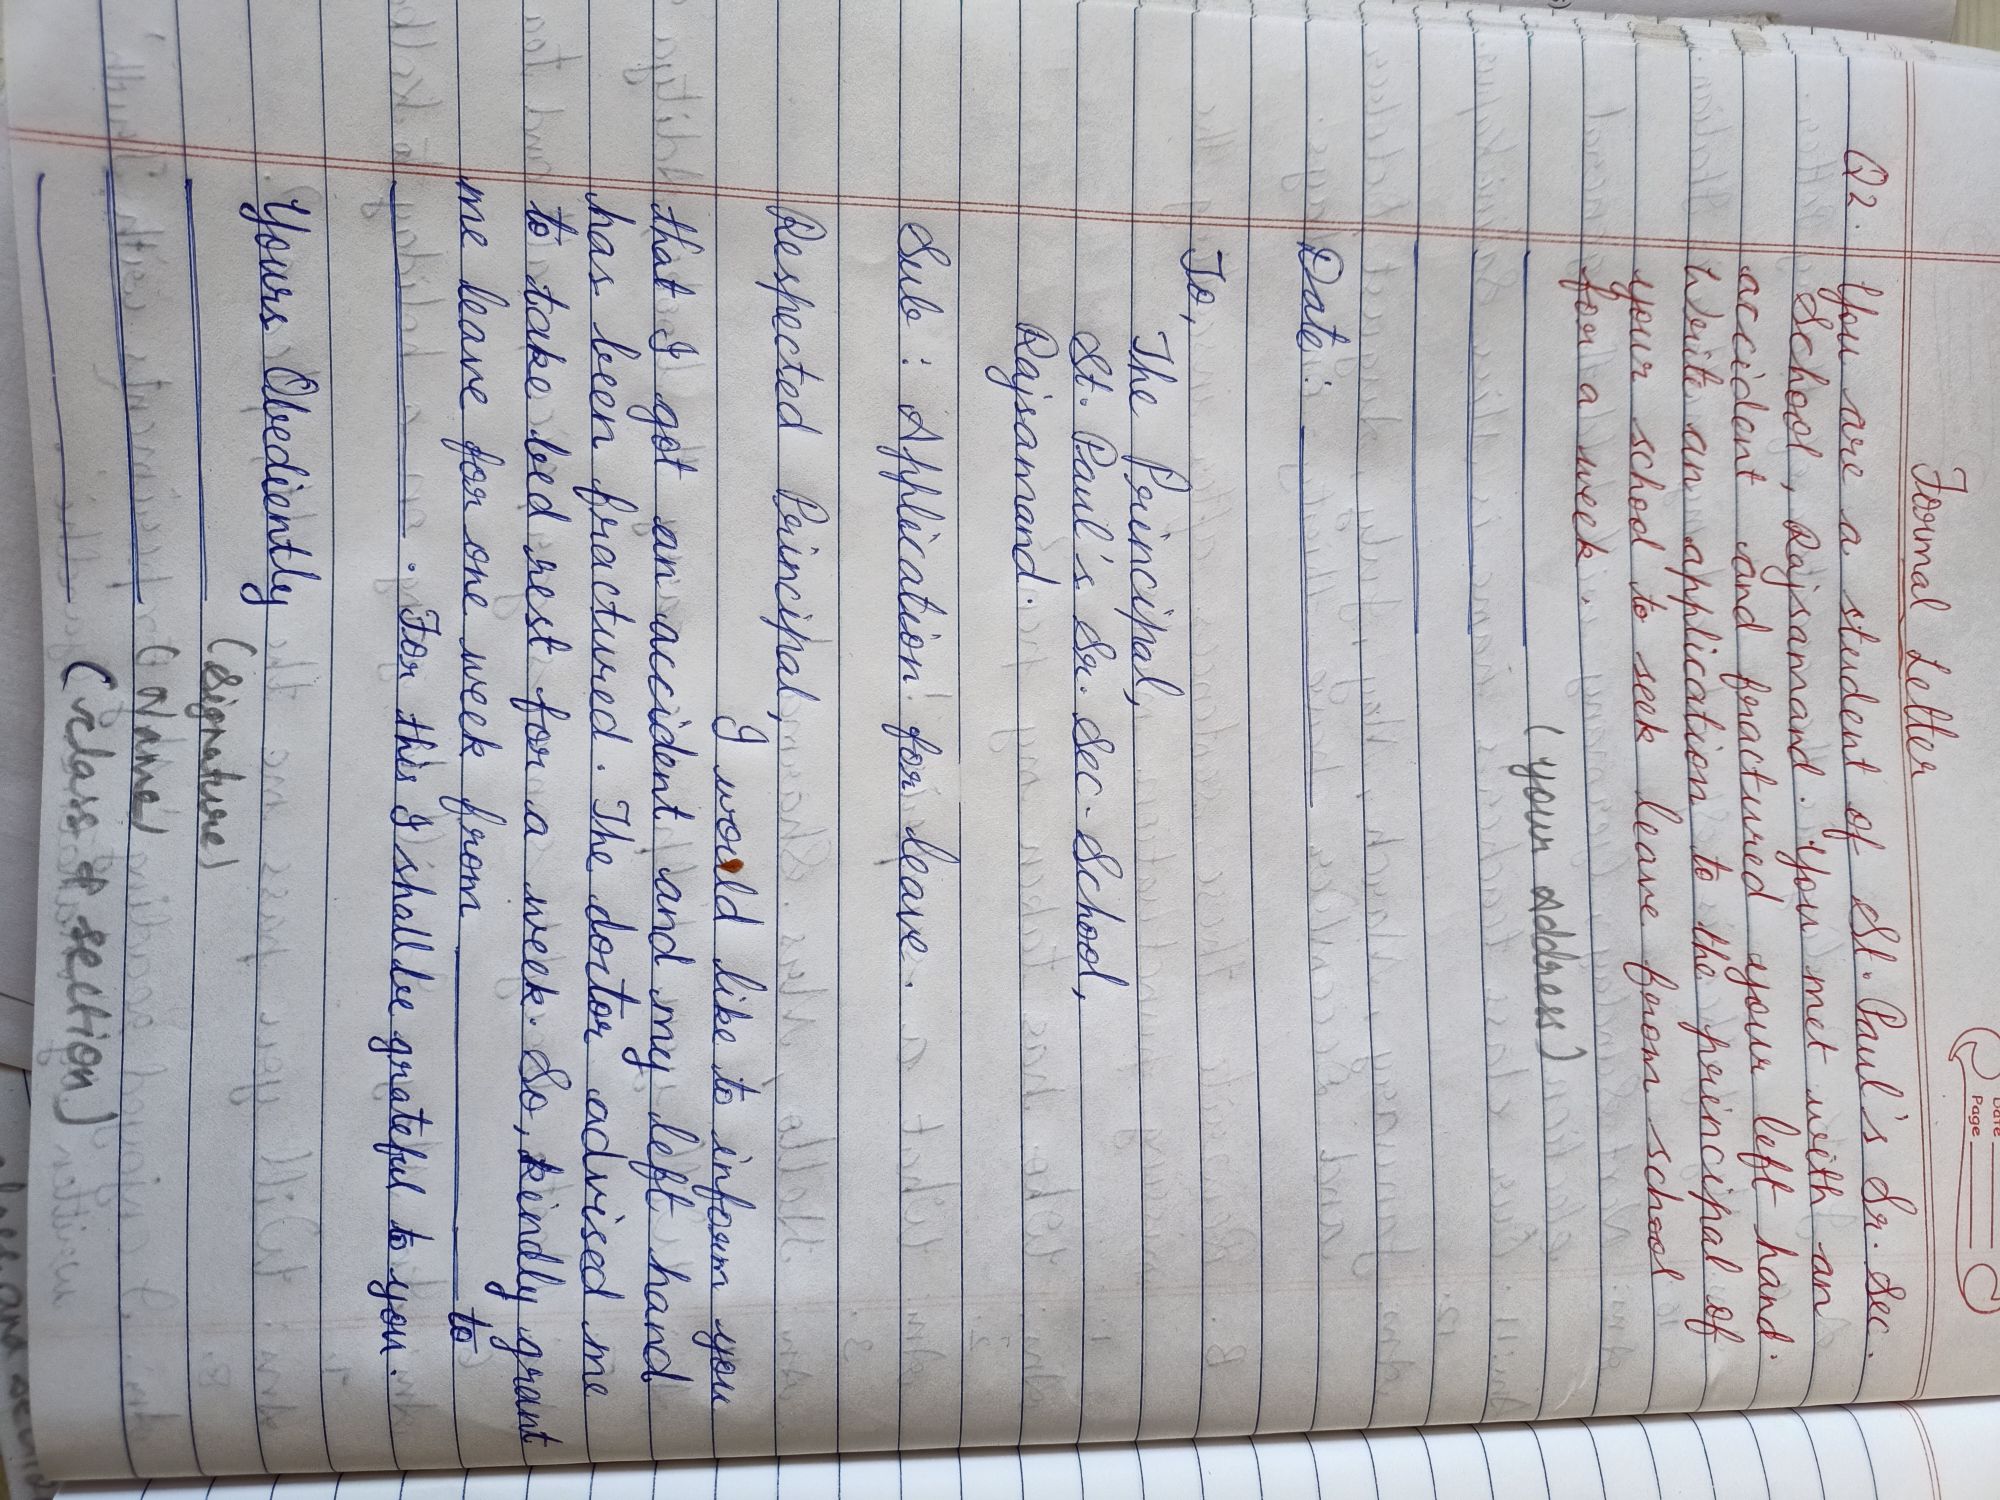 Date
Page
Formal Letter
Q2. You are a student of St. Paul's Sr. Sec.
School, Rajsamand. You met with an
accident and fractured your left hand.
Write an application to the principal of
your school to seek leave from school
for a week.
(your address)
Date:
To,
The Principal,
St. Paul's Sr. Sec. School,
Rajsamand.
Sub: Application for leave.
Respected Principal,
I would like to inform you
that I got an accident and my left hand
has been fractured. The doctor advised me
to take bed rest for a week. So, kindly grant
me leave for one week from ______ to
______. For this I shall be grateful to you.
Yours Obediently
(Signature)
(Name)
(class & section)